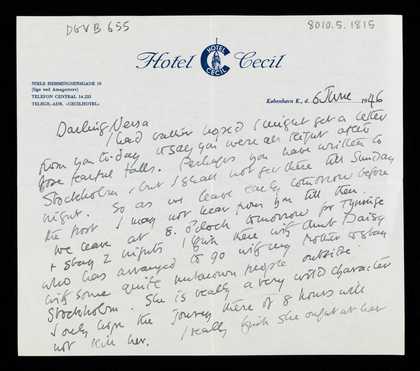 DGVB 655
8010.5.1815
Hotel Cecil
HOTEL
CECIL
NIELS HEMMINGSENSGADE 10
(lige ved Amagertorv)
TELEFON CENTRAL 14.235
TELEGR.-ADR. »CECILHOTEL«
København K., d. 6 June 1946
Darling
I had rather hoped I might get a letter
from you to-day to say you were all right after
your fearful falls. Perhaps you have written to
Stockholm, but I shall not get there till Sunday
night. So as we leave early tomorrow before
the post I may not hear from you till then.
We leave at 8. o'clock tomorrow for
& stay 2 nights there with Aunt Daisy
who has arranged to go with my Mother to stay
with some quite unknown people outside
Stockholm. She is really a very wild character
I only hope the journey there of 8 hours will
not kill her. I really think she ought at her